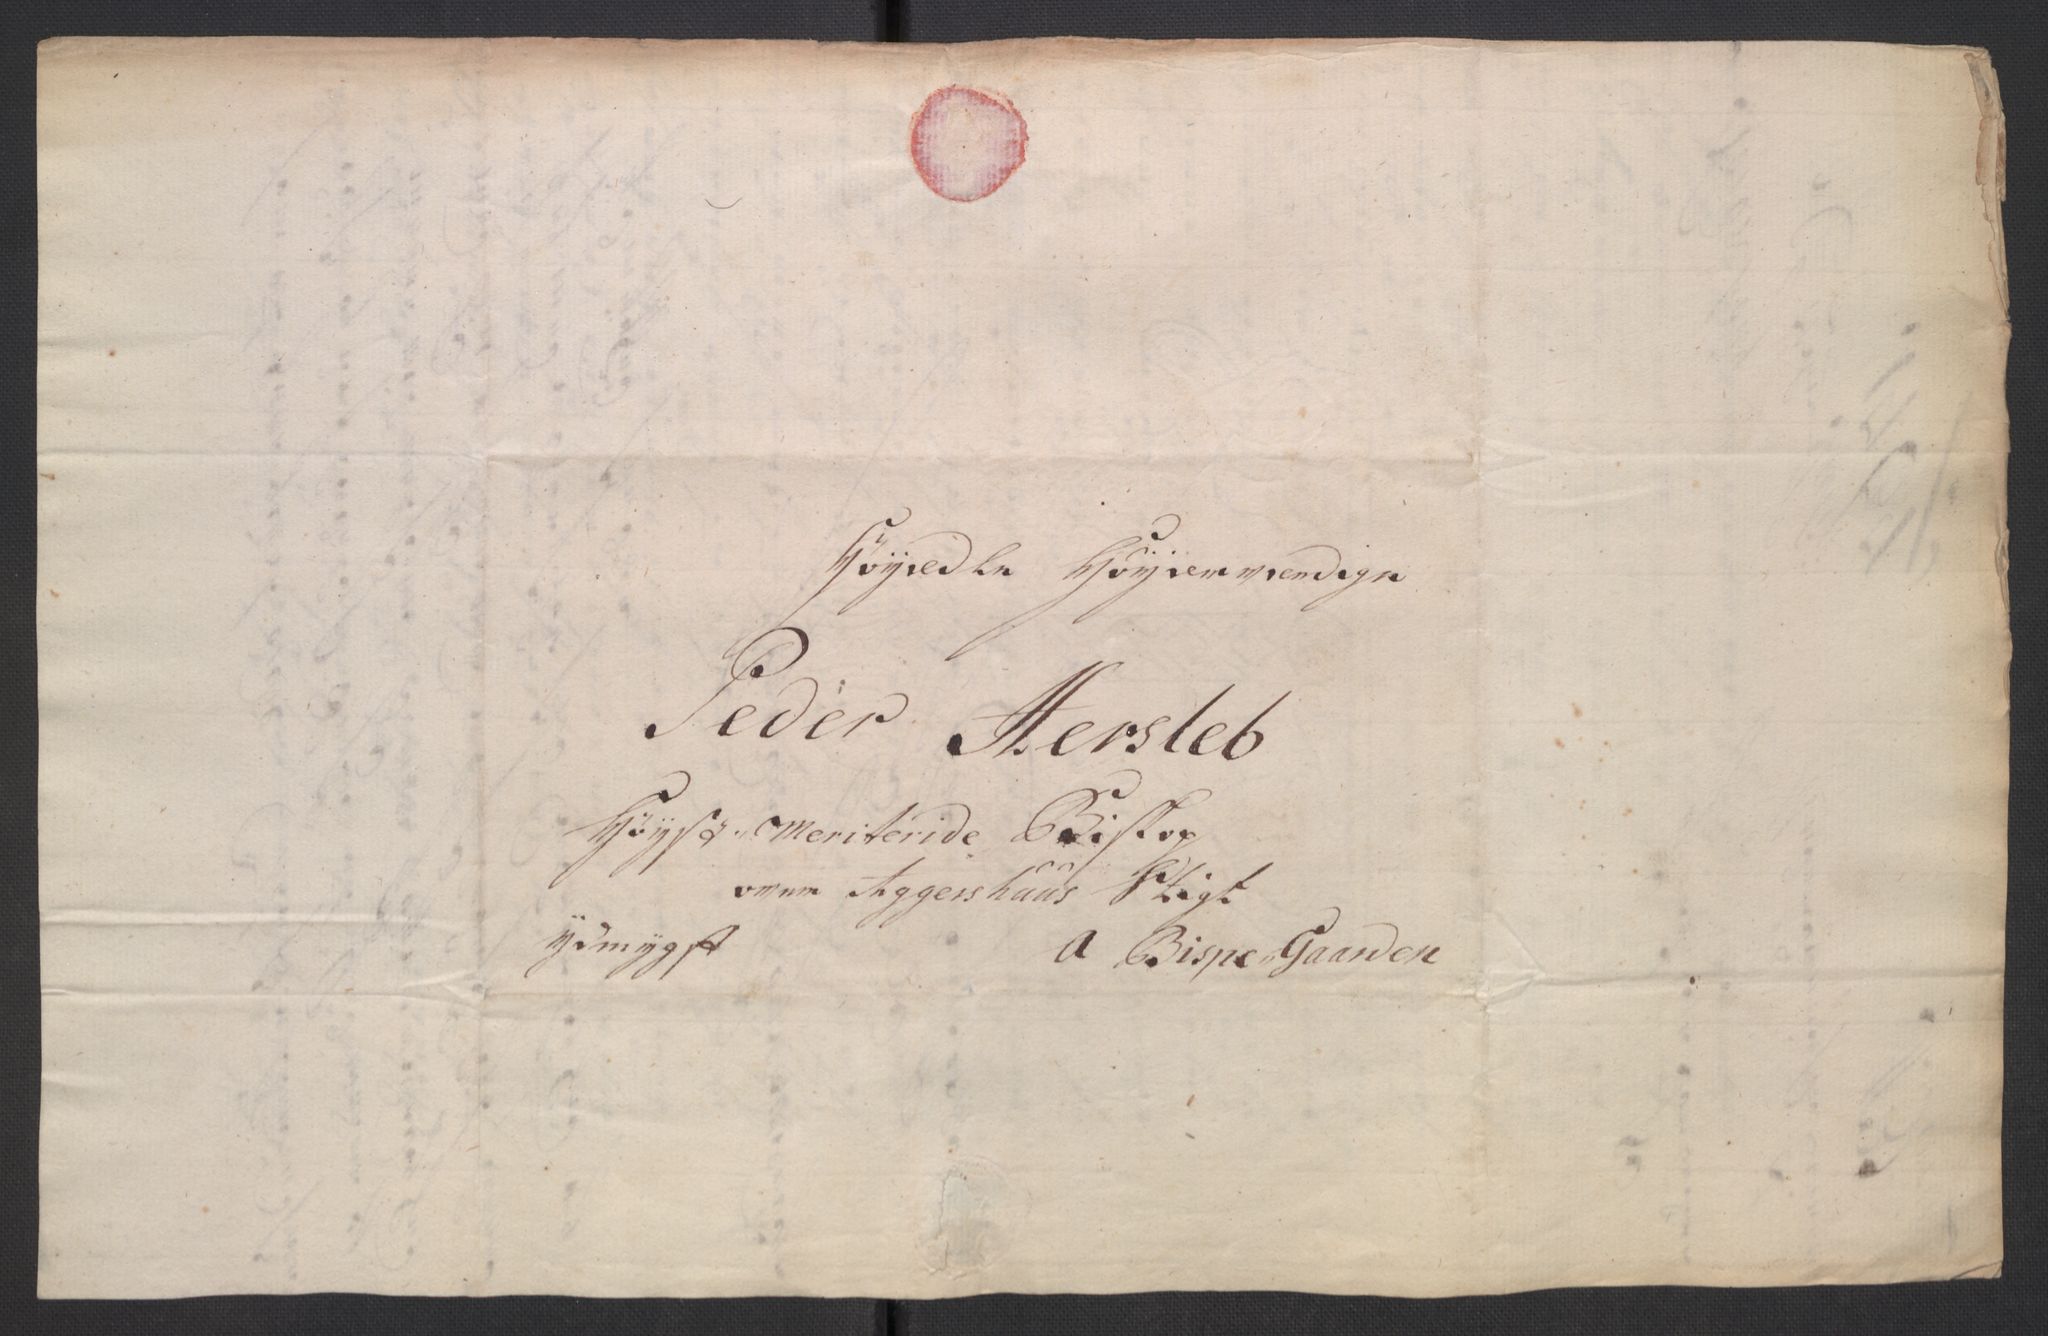 Høyædle Høyærværdige
Peder Hersleb
Høyst Meriterede Biskop
over Aggershuus Stigt
ydmygst a Bispe-Gaarden